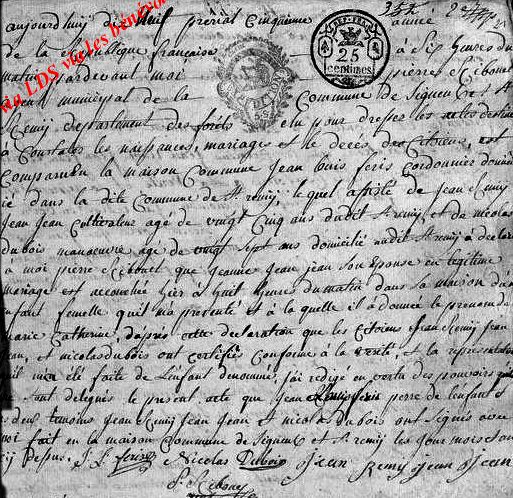 aujourd'huij dix huit prérial cinquieme année
de la République française à Six heures du
matin pardevant moi pierre Ribonet
agent municipal de la Commune de Signeulx et St
Remij departement des forêts elu pour dresser les actes destinés
à Constater les naissances, mariages et le décès des Citoiens, est
Comparu en la maison Commune Jean louis feris Cordonnier domici
lié dans la dite Commune de St remij, lequel assisté de Jean Remij
Jean Jean Cultivateur agé de vingt Cinq ans dudit St remij et de nicolas
dubois manoeuvre agé de vingt sept ans domicilié audit St remij a declaré
a moi pierre Ribonet que Jeanne Jean jean son Epouse en légitime
mariage est accouchée hier à huit heures du matin dans sa maison d'un
enfant femelle qu'il m'a presenté et à la quelle il a donnée le prenom de
marie Catherine, d'après cette declaration que les Citoiens Jean Remij Jean
Jean, et nicolas dubois ont certifiés Conforme à la verité, et la representation
qu'il m'a été faite de l'enfant denommé, j'ai redigé en vertu des pouvoirs qui
me sont delegués le present acte que Jean Louis feris perre de l'enfant et
les deux temoins Jean Remij Jean Jean et nicolas dubois ont signés avec
moi fait en la maison Commune de Signeulx et St remij les Jour mois et an
Dessus.
J. L. feris Nicolas Dubois Jean Remy Jean Jean
P. Ribonet
25
centimes
via LDS via les bénévol